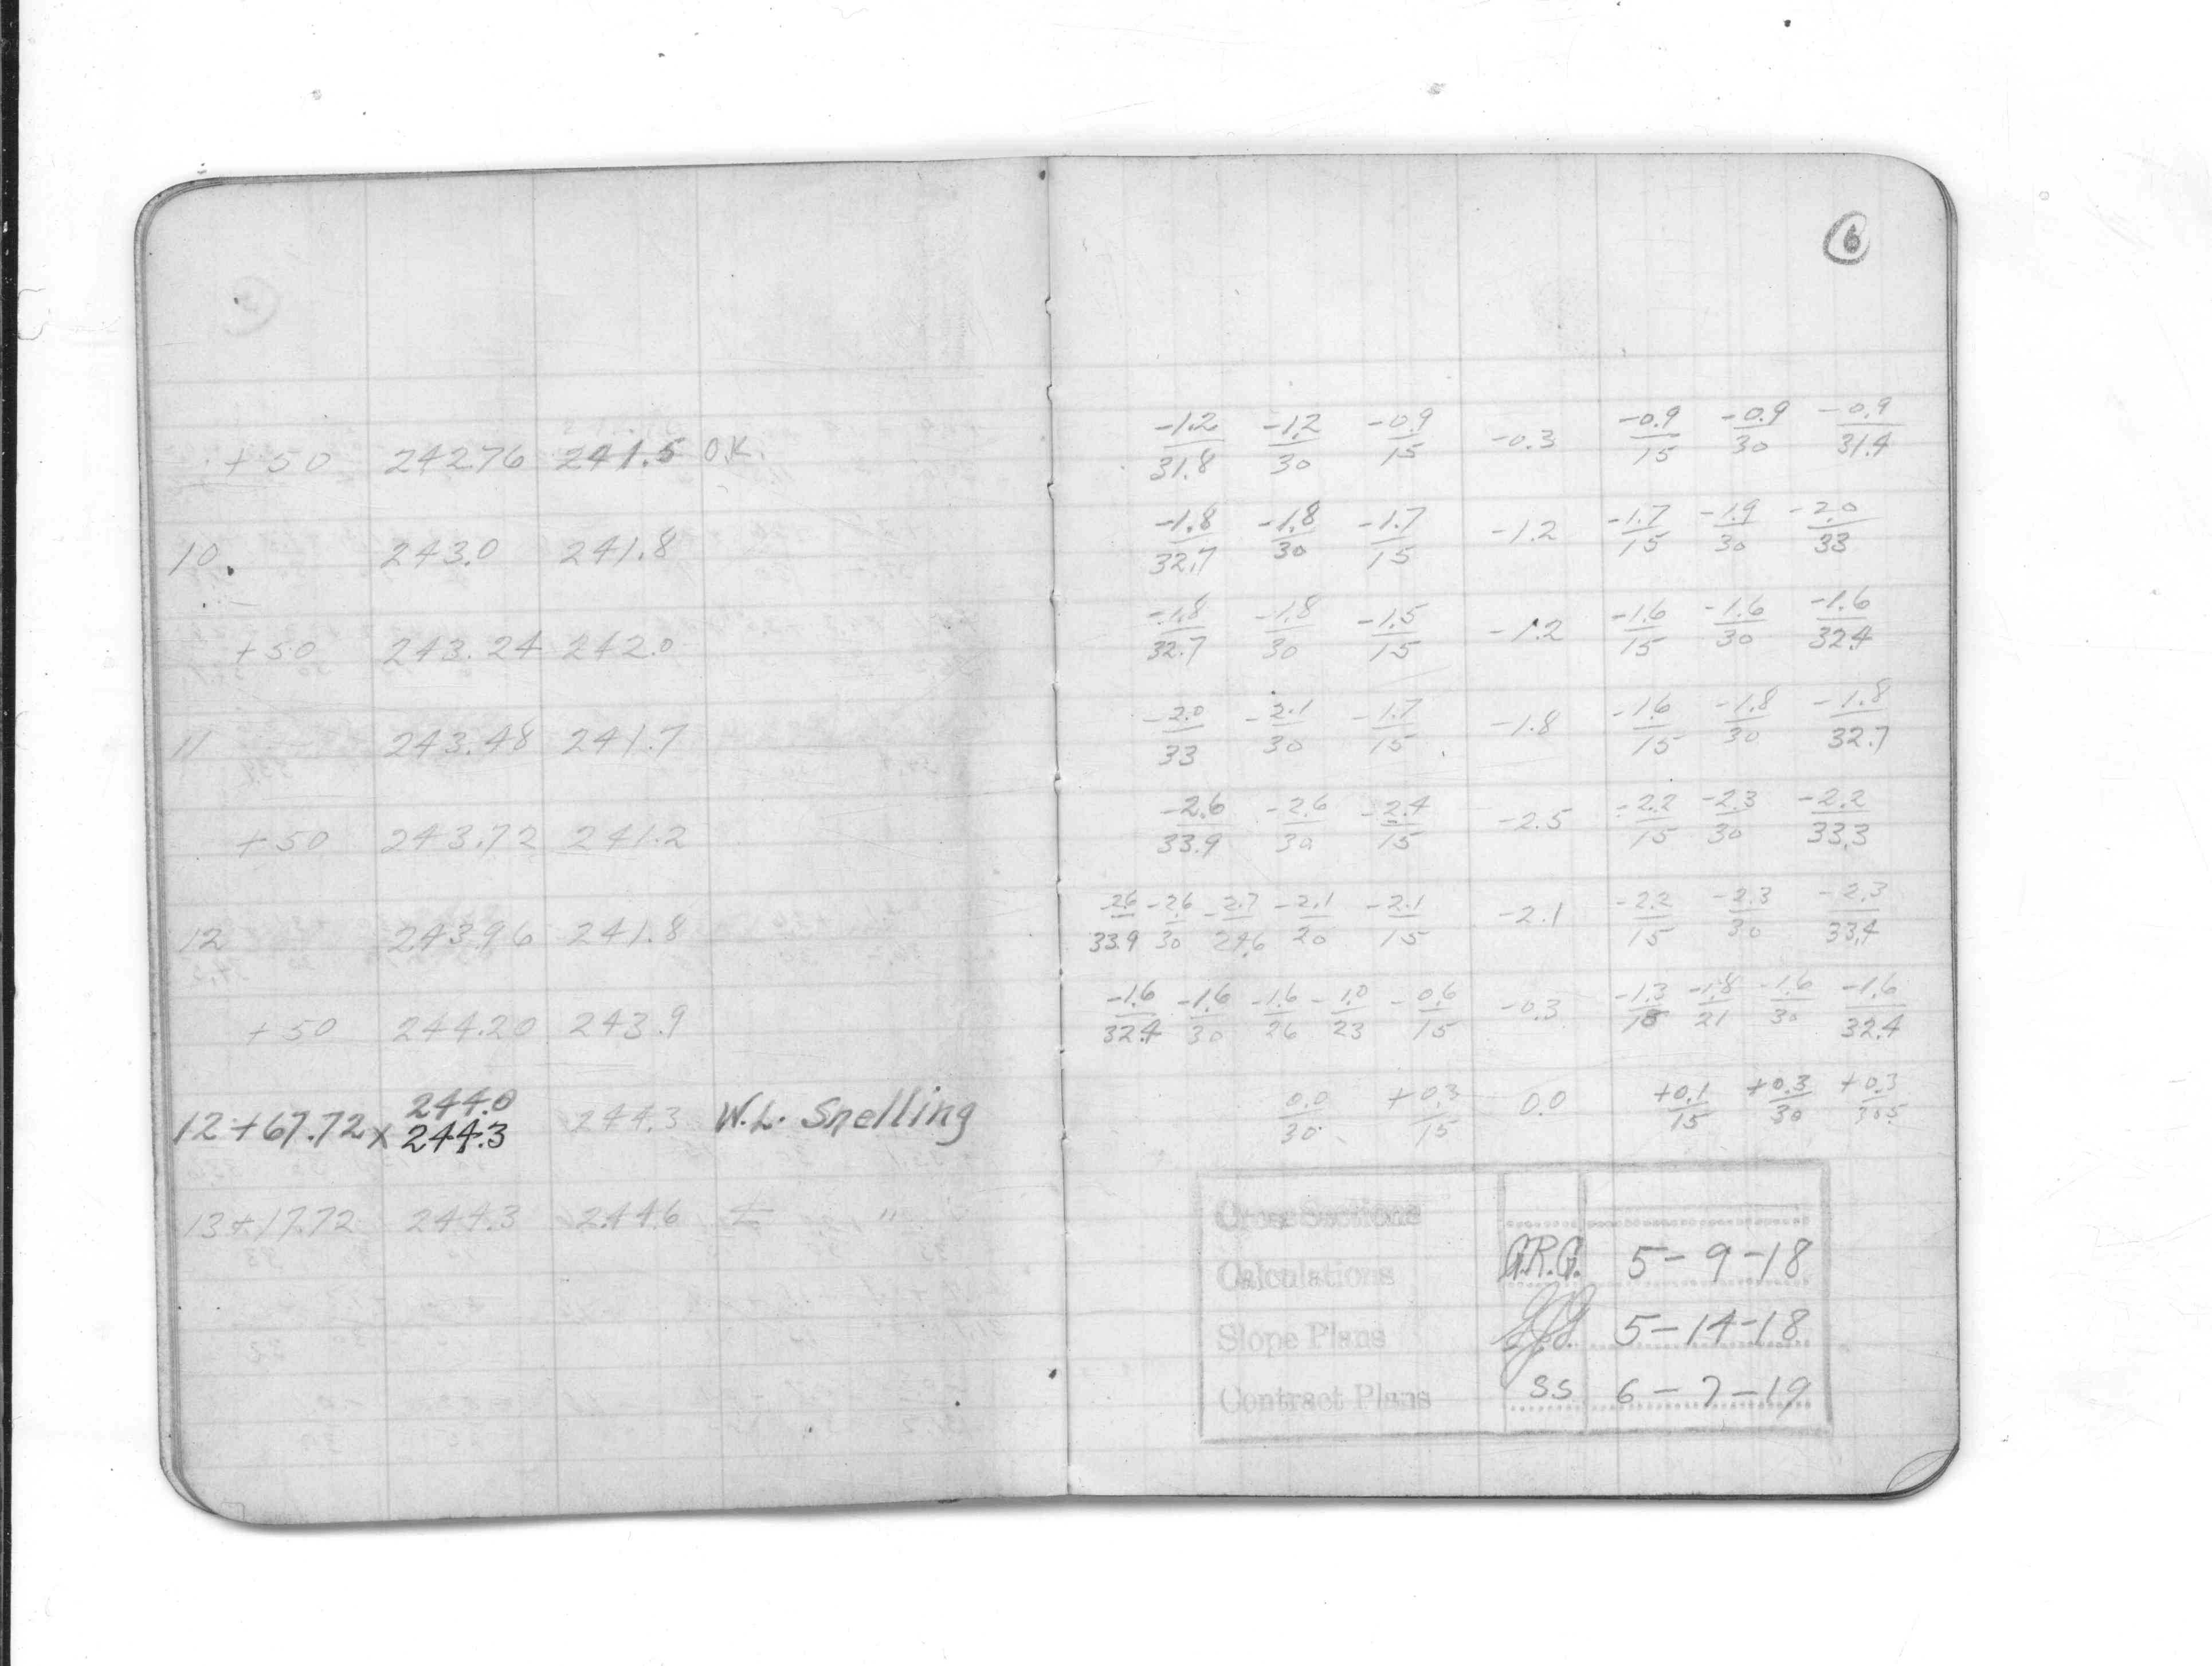 6
+50 242.76 241.5 O.K. -1.2/31.8 -1.2/30 -0.9/15 -0.3 -0.9/15 -0.9/30 -0.9/31.4
10. 243.0 241.8 -1.8/32.7 -1.8/30 -1.7/15 -1.2 -1.7/15 -1.9/30 -2.0/33
+50 243.24 242.0 -1.8/32.7 -1.8/30 -1.5/15 -1.2 -1.6/15 -1.6/30 -1.6/32.4
11 243.48 241.7 -2.0/33 -2.1/30 -1.7/15 -1.8 -1.6/15 -1.8/30 -1.8/32.7
+50 243.72 241.2 -2.6/33.9 -2.6/30 -2.4/15 -2.5 -2.2/15 -2.3/30 -2.2/33.3
12 243.96 241.8 -2.6/33.9 -2.6/30 -2.7/24.6 -2.1/20 -2.1/15 -2.1 -2.2/15 -2.3/30 -2.3/33.4
+50 244.20 243.9 -1.6/32.4 -1.6/30 -1.6/26 -1.0/23 -0.6/15 -0.3 -1.3/18 -1.8/21 -1.6/30 -1.6/32.4
244.0
12+67.72 x 244.3 244.3 W.L. Snelling 0.0/30 +0.3/15 0.0 +0.1/15 +0.3/30 +0.3/30.5
13+17.72 244.3 244.6 "
Cross Sections
Calculations G.R.G. 5-9-18
Slope Plans 5-14-18
Contract Plans SS 6-7-19